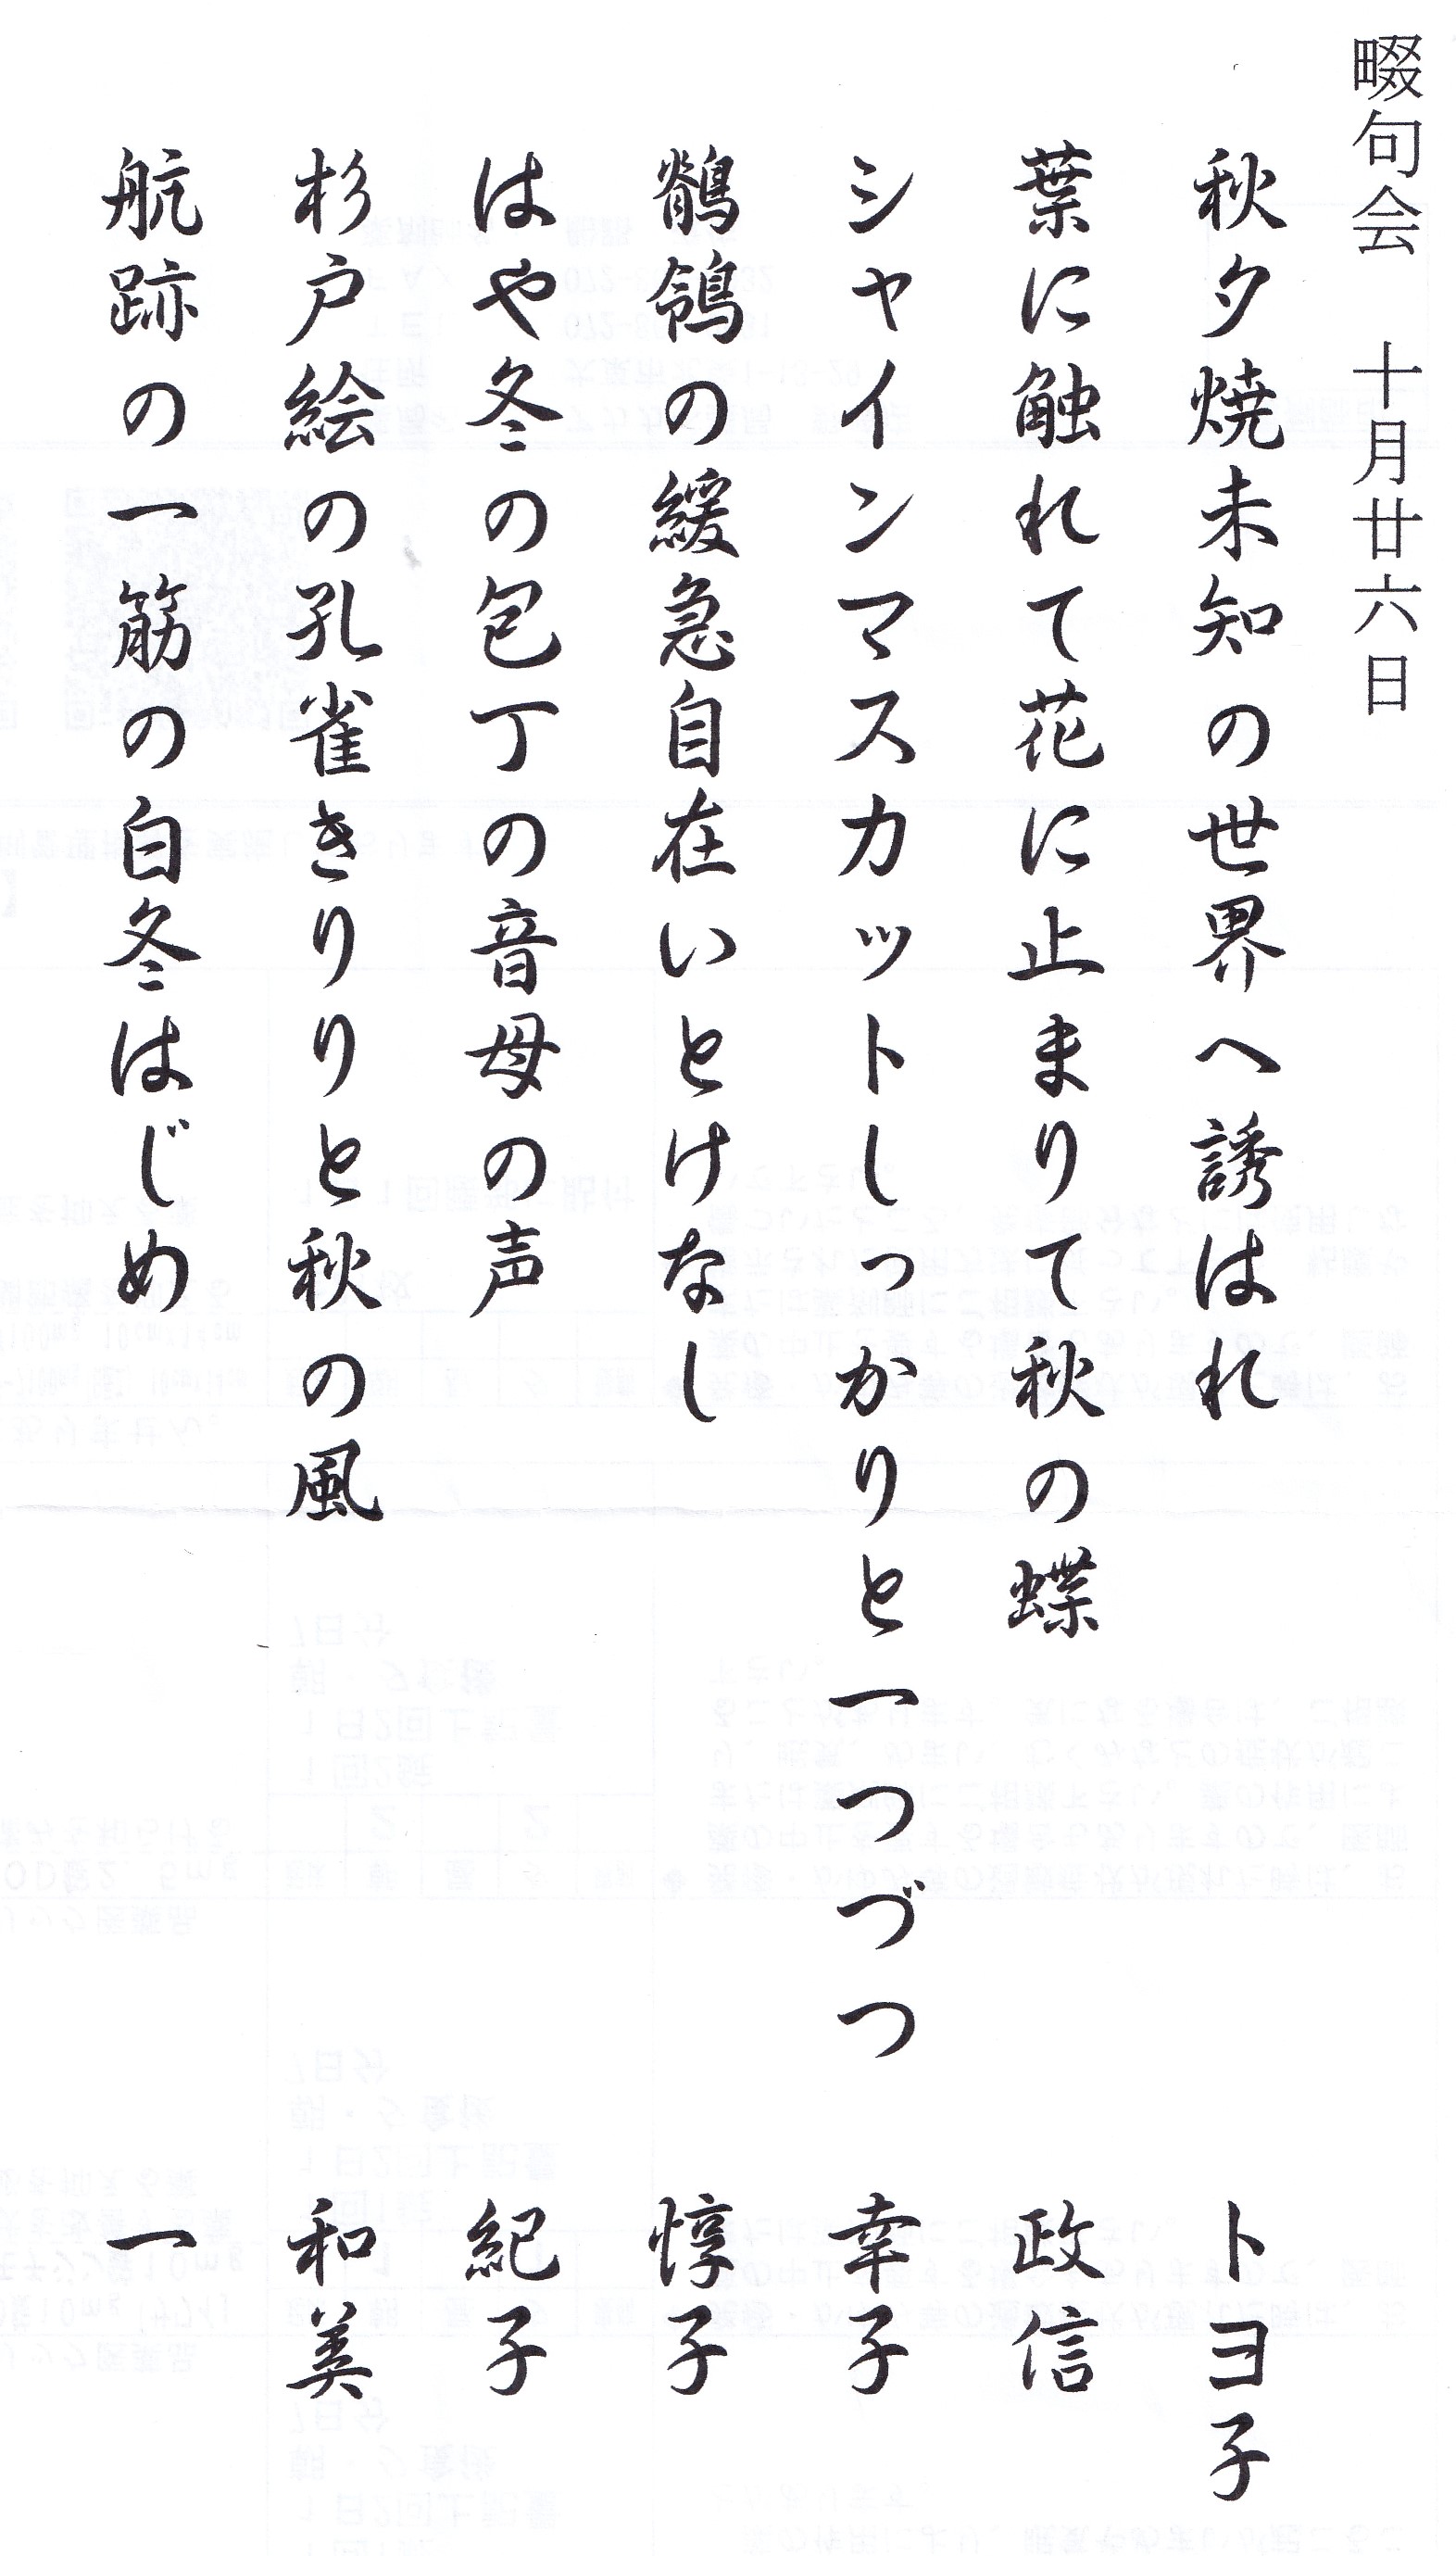 畷句会　十月廿六日
秋夕焼未知の世界へ誘はれ　トヨ子
葉に触れて花に止まりて秋の蝶　政信
シャインマスカットしっかりと一つづつ　幸子
鶺鴒の緩急自在いとけなし　惇子
はや冬の包丁の音母の声　紀子
杉戸絵の孔雀きりりと秋の風　和美
航跡の一筋の白冬はじめ　一